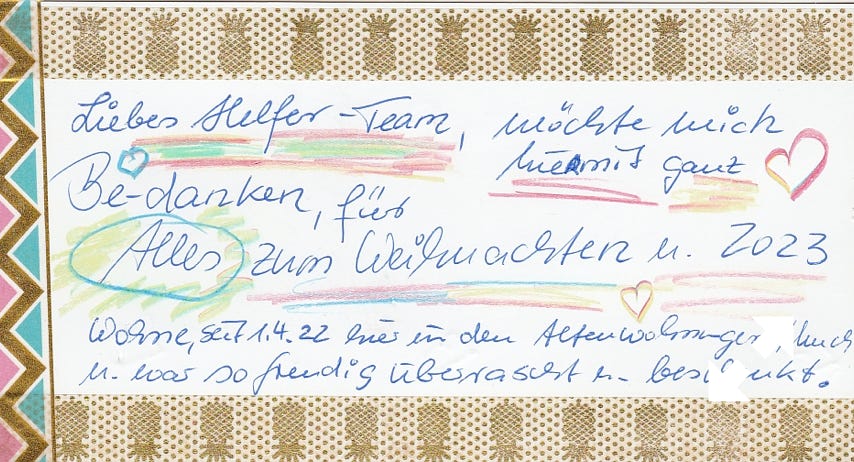 Liebes Helfer-Team, möchte mich
hiermit ganz
Be-danken, für
Alles zum Weihnachten u. 2023
Wohne, seit 1.4.22 hier in den Altenwohnungen
u. war so freudig überrascht u. beschenkt.